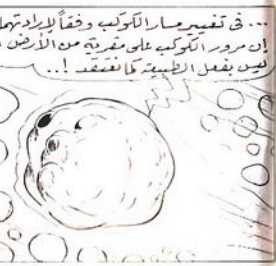 ... فى تغيير مسار الكوكب وفقاً لإرادتهما
إن مرور الكوكب على مقربة من الأرض
ليس بفعل الطبيعة كما نعتقد !..